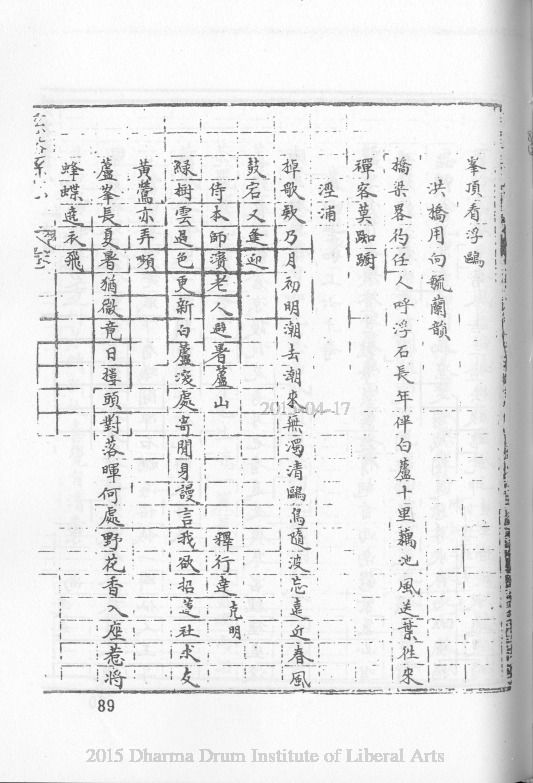 峯頂看浮鷗
洪橋用向毓蘭韻
橋梁畧彴任人呼浮石長年伴白蘆十里藕池風送葉徃來
禪客莫踟躕
浬浦
棹歌欸乃月初明潮去潮來無濁清鷗鳥隨波忘遠近春風
鼓宕又逢迎
侍本師濱老人避暑蘆山 釋行達 克明
綠樹雲過色更新白蘆深處寄閒身謾言我欲招蓮社求友
黃鶯亦弄頻
蘆峯長夏暑猶微竟日擡頭對落暉何處野花香入座惹將
蜂蝶遶衣飛
89
2013-04-17
2015 Dharma Drum Institute of Liberal Arts